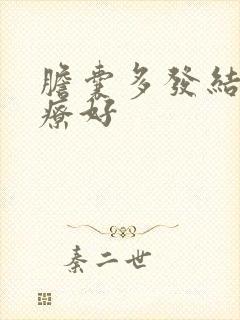 膽囊多發結
療好
秦二世